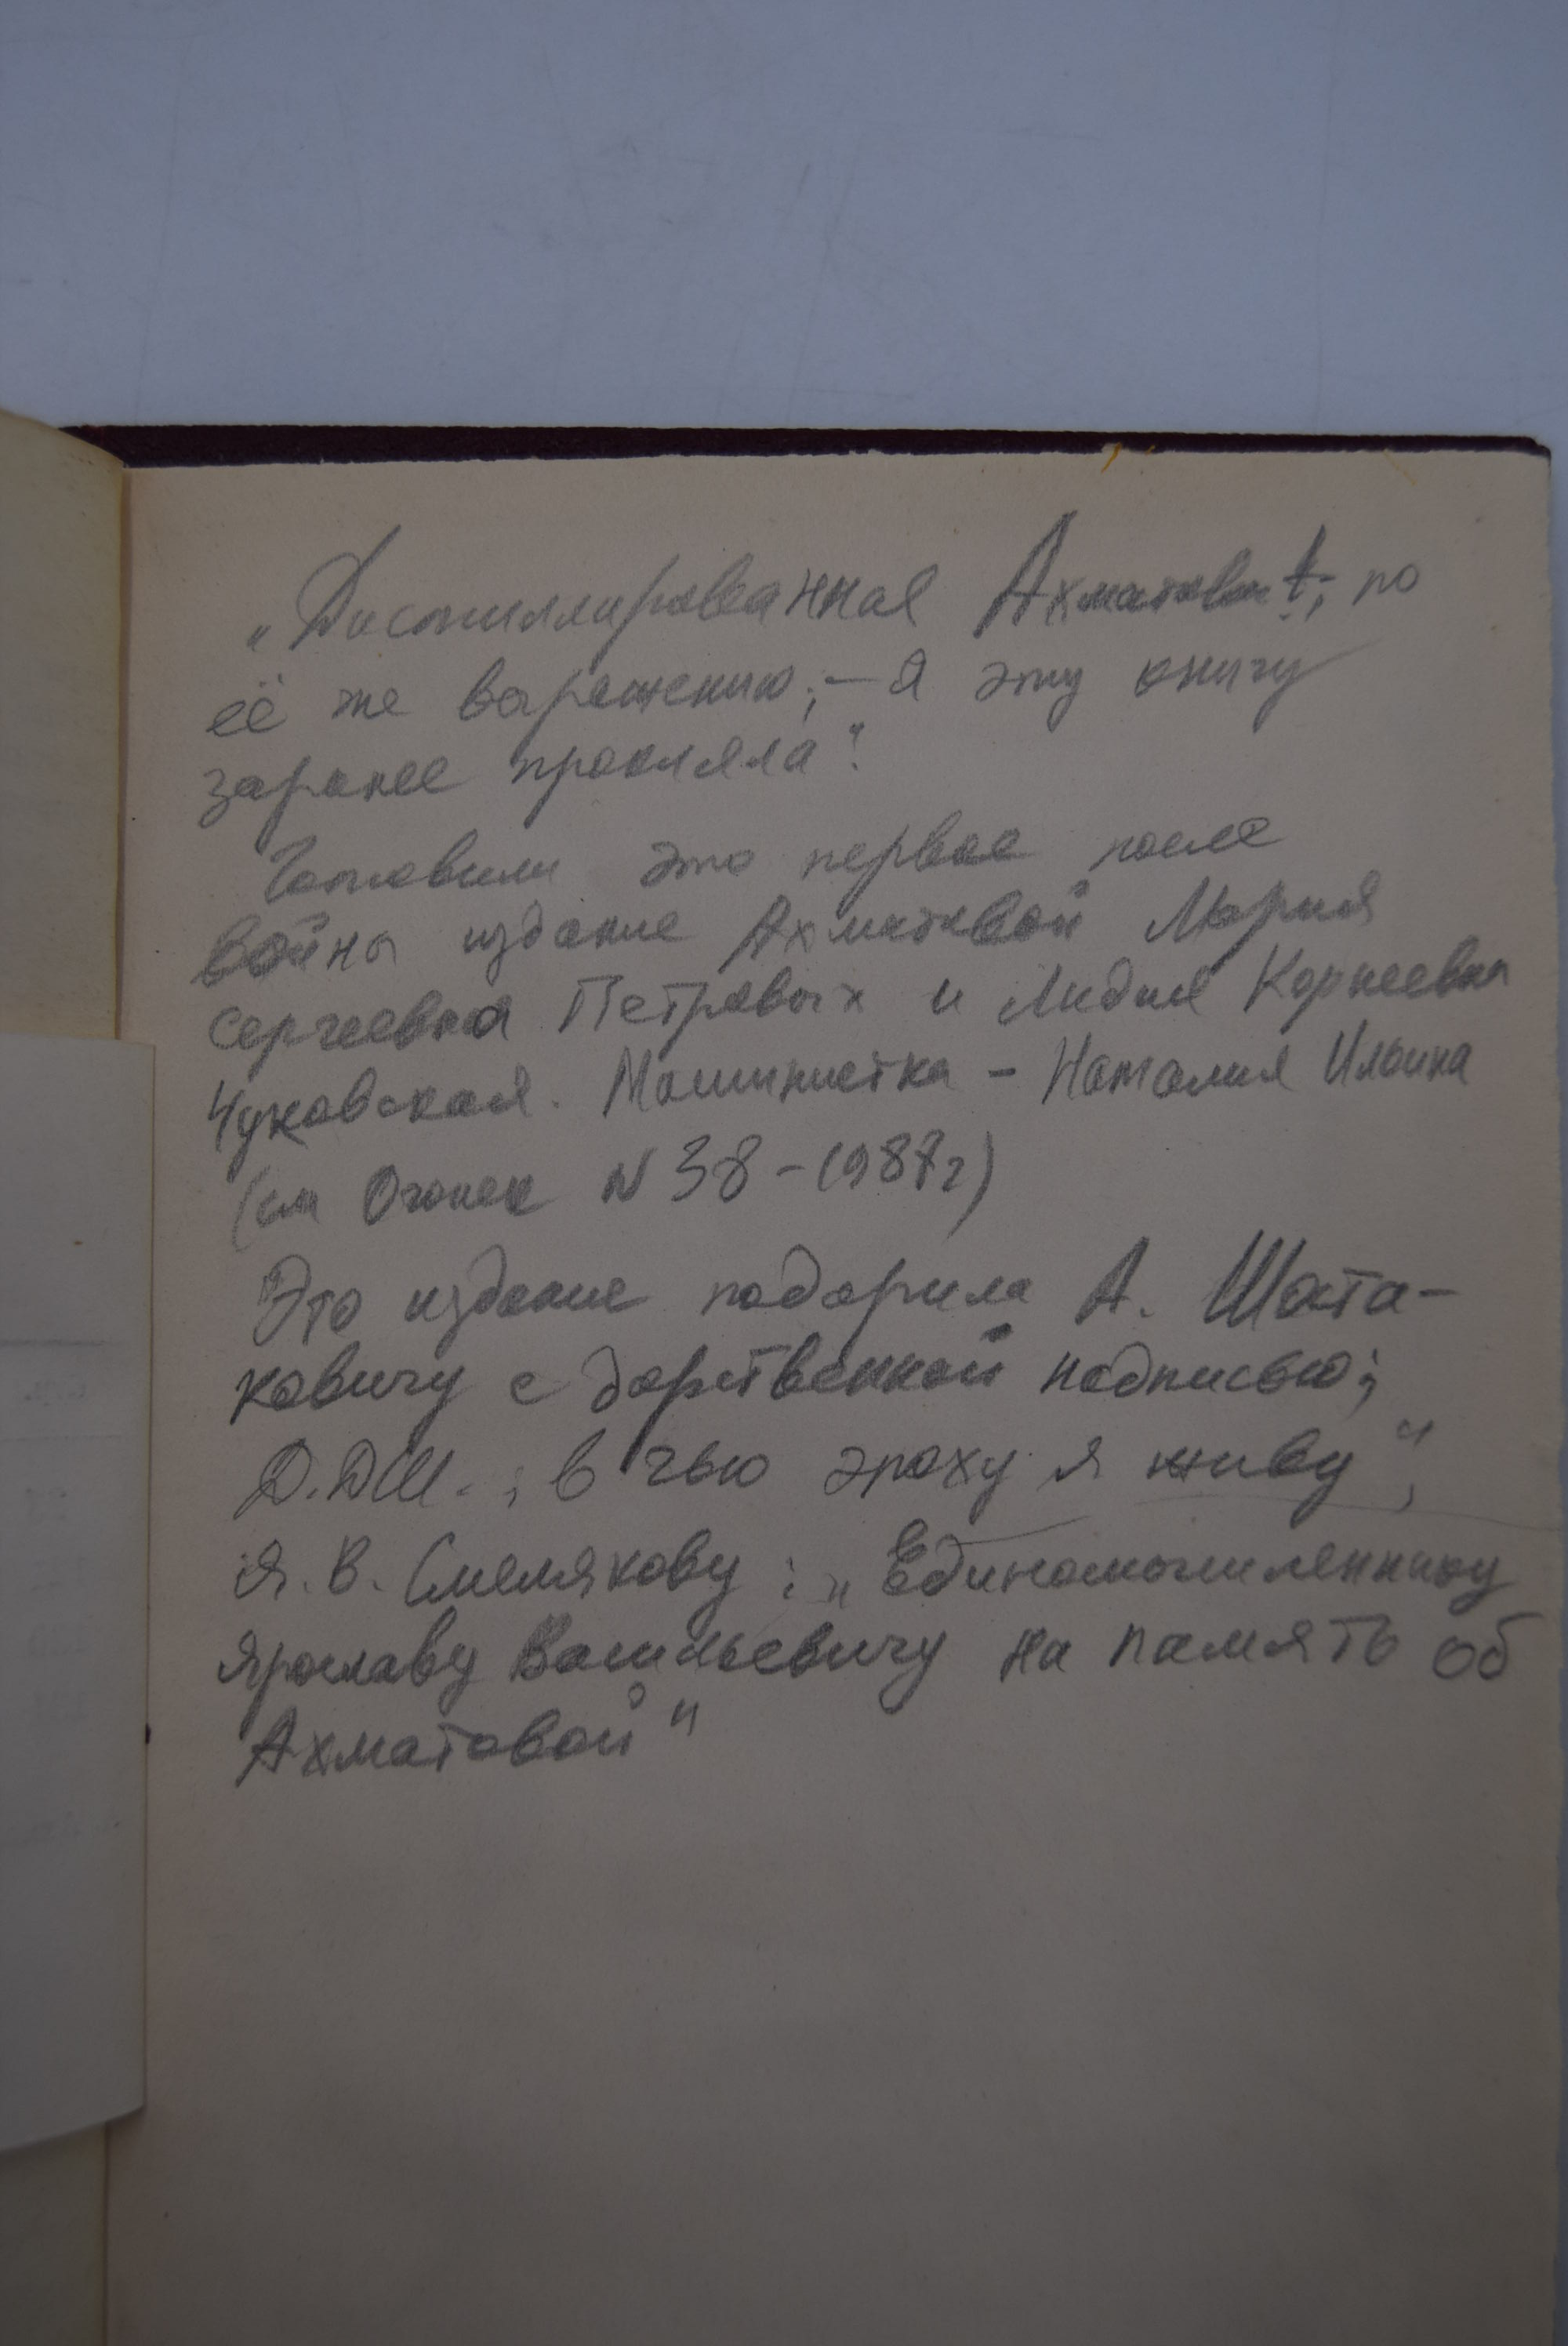 „Дистиллированная Ахматова", по
её же выражению, – я эту книгу
заранее прокляла".
Готовили это первое после
войны издание Ахматовой Мария
Сергеевна Петровых и Лидия Корнеевна
Чуковская. Машинистка – Наталия Ильина
(см Огонек N 38 – 1987 г)
Это издание подарила А. Шоста-
ковичу с дарственной надписью:
Д.Д.Ш., в чью эпоху я живу",
Я. В. Смелякову : „Единомышленнику
Ярославу Васильевичу на память об
Ахматовой"